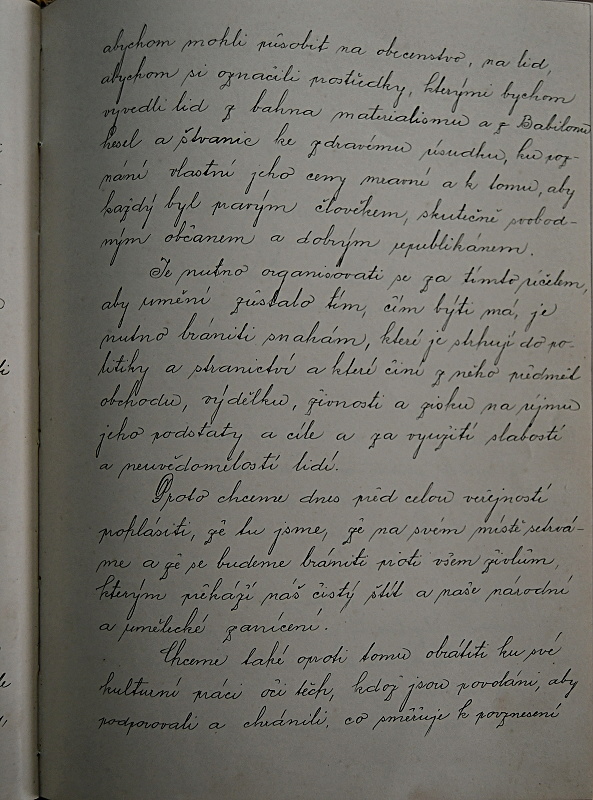 abychom mohli působit na obecenstvo, na lid,
abychom si označili prostředky, kterými bychom
vyvedli lid z bahna materialismu a z Babilonu
hesel a štvanic ke zdravému úsudku, ku poz-
nání vlastní jeho ceny mravní a k tomu, aby
každý byl pravým člověkem, skutečně svobod-
ným občanem a dobrým republikánem.
Je nutno organisovati se za tímto účelem,
aby umění zůstalo tím, čím býti má, je
nutno brániti snahám, které je strhují do po-
litiky a stranictví a které činí z něho předmět
obchodu, výdělku, živnosti a zisku na újmu
jeho podstaty a cíle a za využití slabostí
a neuvědomělostí lidí.
Proto chceme dnes před celou veřejností
prohlásiti, že tu jsme, že na svém místě setrvá-
me a že se budeme brániti proti všem živlům,
kterým překáží náš čistý štít a naše národní
a umělecké zanícení.
Chceme také oproti tomu obrátiti ku své
kulturní práci oči těch, kdož jsou povoláni, aby
podporovali a chránili, co směřuje k povznesení